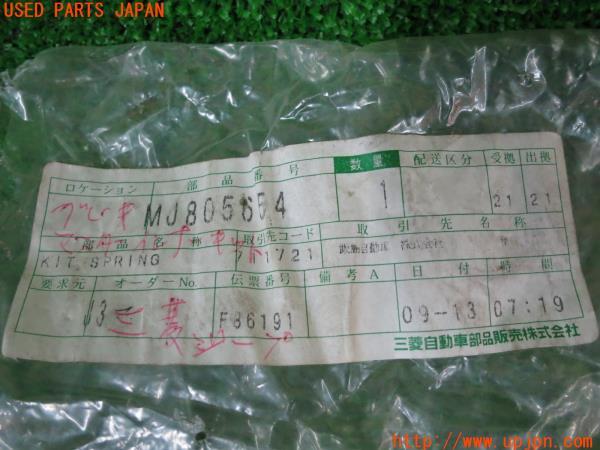 USED PARTS JAPAN
ロケーション 部品番号 数量 配送区分 受拠 出拠
ブレーキ MJ805654 1 21 21
部品名称 取引先コード 取引先名称
KIT,SPRING 1721 株式会社
要求元 オーダーNo. 伝票番号 備考A 日付 時間
J3 三菱ジープ F86191 09-13 07:19
三菱自動車部品販売株式会社
UPJ
http://www.upjpn.com/